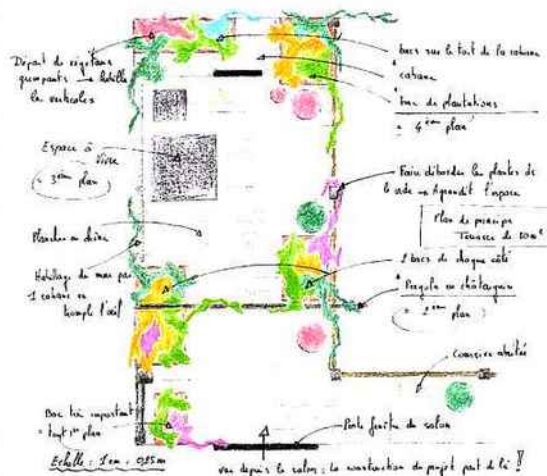 Départ de végétaux
grimpants → habille
les verticales
Espace à
Vivre
= 3ème plan
Plancher en chêne
Habillage du mur par
1 cabane en
trompe l'œil
Bac très important
= tout 1er plan
Echelle : 1 cm = 0,25 m
bacs sur le toit de la cabane
cabane
bac de plantations
= 4ème plan
Faire déborder les plantes de
le vide → Agrandit l'espace
Plan de principe
Terrasse de 20m²
2 bacs de chaque côté
Pergola en châtaignier
= 2ème plan
Coursive abritée
Porte fenêtre du salon
vue depuis le salon : la construction du projet part de là !